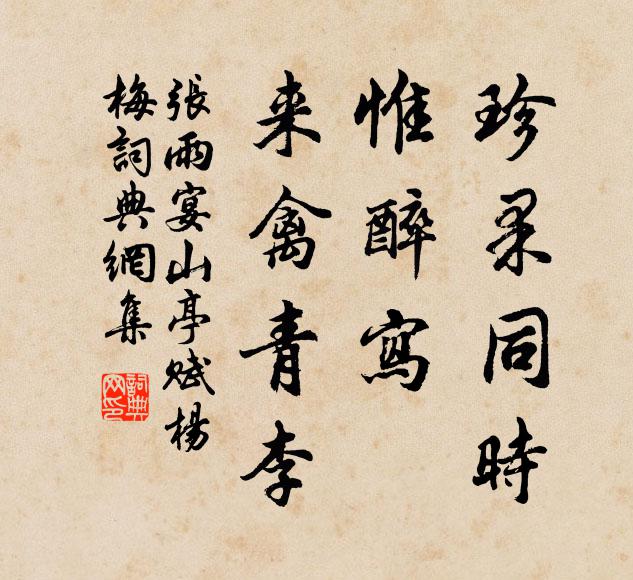 珍果同時
惟醉寫
来禽青李
張雨宴山亭賦楊
梅詞典網集
詞典
网印